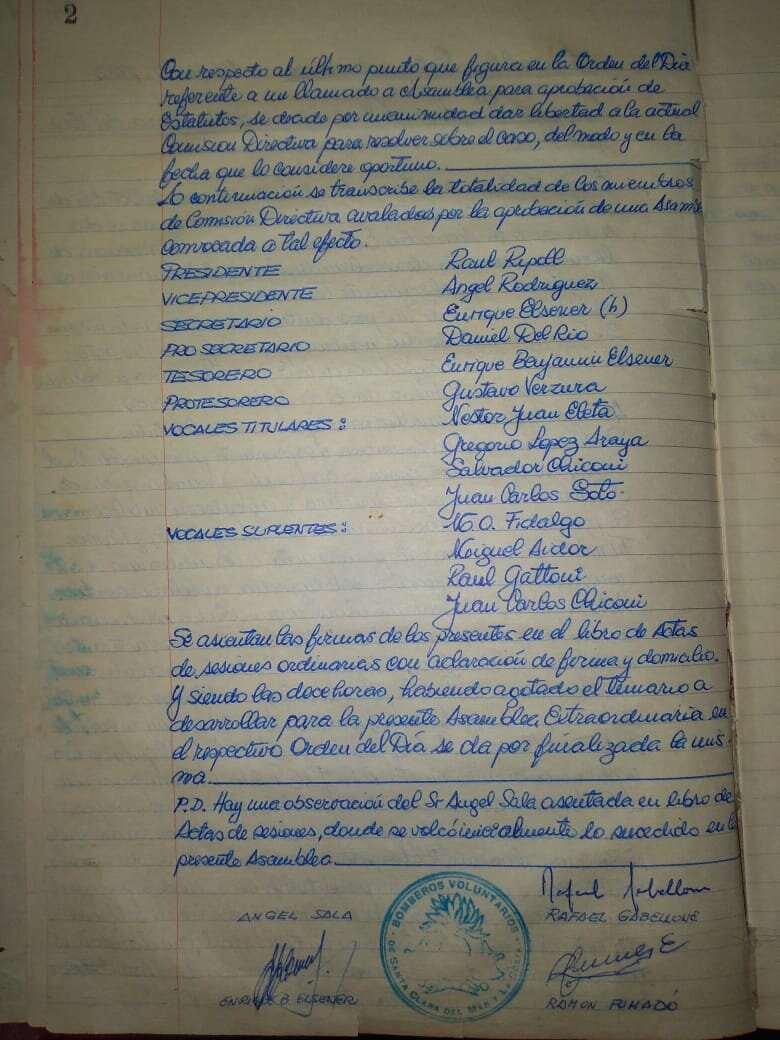 2
Con respecto al último punto que figura en la Orden del Dia
referente a un llamado a Asamblea para aprobación de
Estatutos, se decide por unanimidad dar libertad a la actual
Comision Directiva para resolver sobre el caso, del modo y en la
fecha que lo considere oportuno.
A continuación se transcribe la totalidad de los miembros
de Comisión Directiva avalados por la aprobación de una Asam
convocada a tal efecto.
PRESIDENTE Raul Ripoll
VICEPRESIDENTE Angel Rodriguez
SECRETARIO Enrique Elsener (h)
PRO SECRETARIO Daniel Del Rio
TESORERO Enrique Benjamin Elsener
PROTESORERO Gustavo Verzura
VOCALES TITULARES: Nestor Juan Eleta
Gregorio Lopez Araya
Salvador Chiconi
Juan Carlos Soto.
VOCALES SUPLENTES: N.O. Fidalgo
Miguel Aidor
Raul Gattoni
Juan Carlos Chiconi
Se asientan las firmas de los presentes en el libro de Actas
de sesiones ordinarias con aclaración de firma y domicilio.
Y siendo las doce horas, habiendo agotado el temario a
desarrollar para la presente Asamblea Extraordinaria en
el respectivo Orden del Día se da por finalizada la mis-
ma.
P.D. Hay una observación del Sr Angel Sala asentada en libro de
Actas de sesiones, donde se volcó inicialmente lo sucedido en la
presente Asamblea
ANGEL SALA
RAFAEL GABELLONE
BOMBEROS VOLUNTARIOS
DE SANTA CLARA DEL MAR Y LA COSTA
ENRIQUE B ELSENER
RAMON FUMADÓ